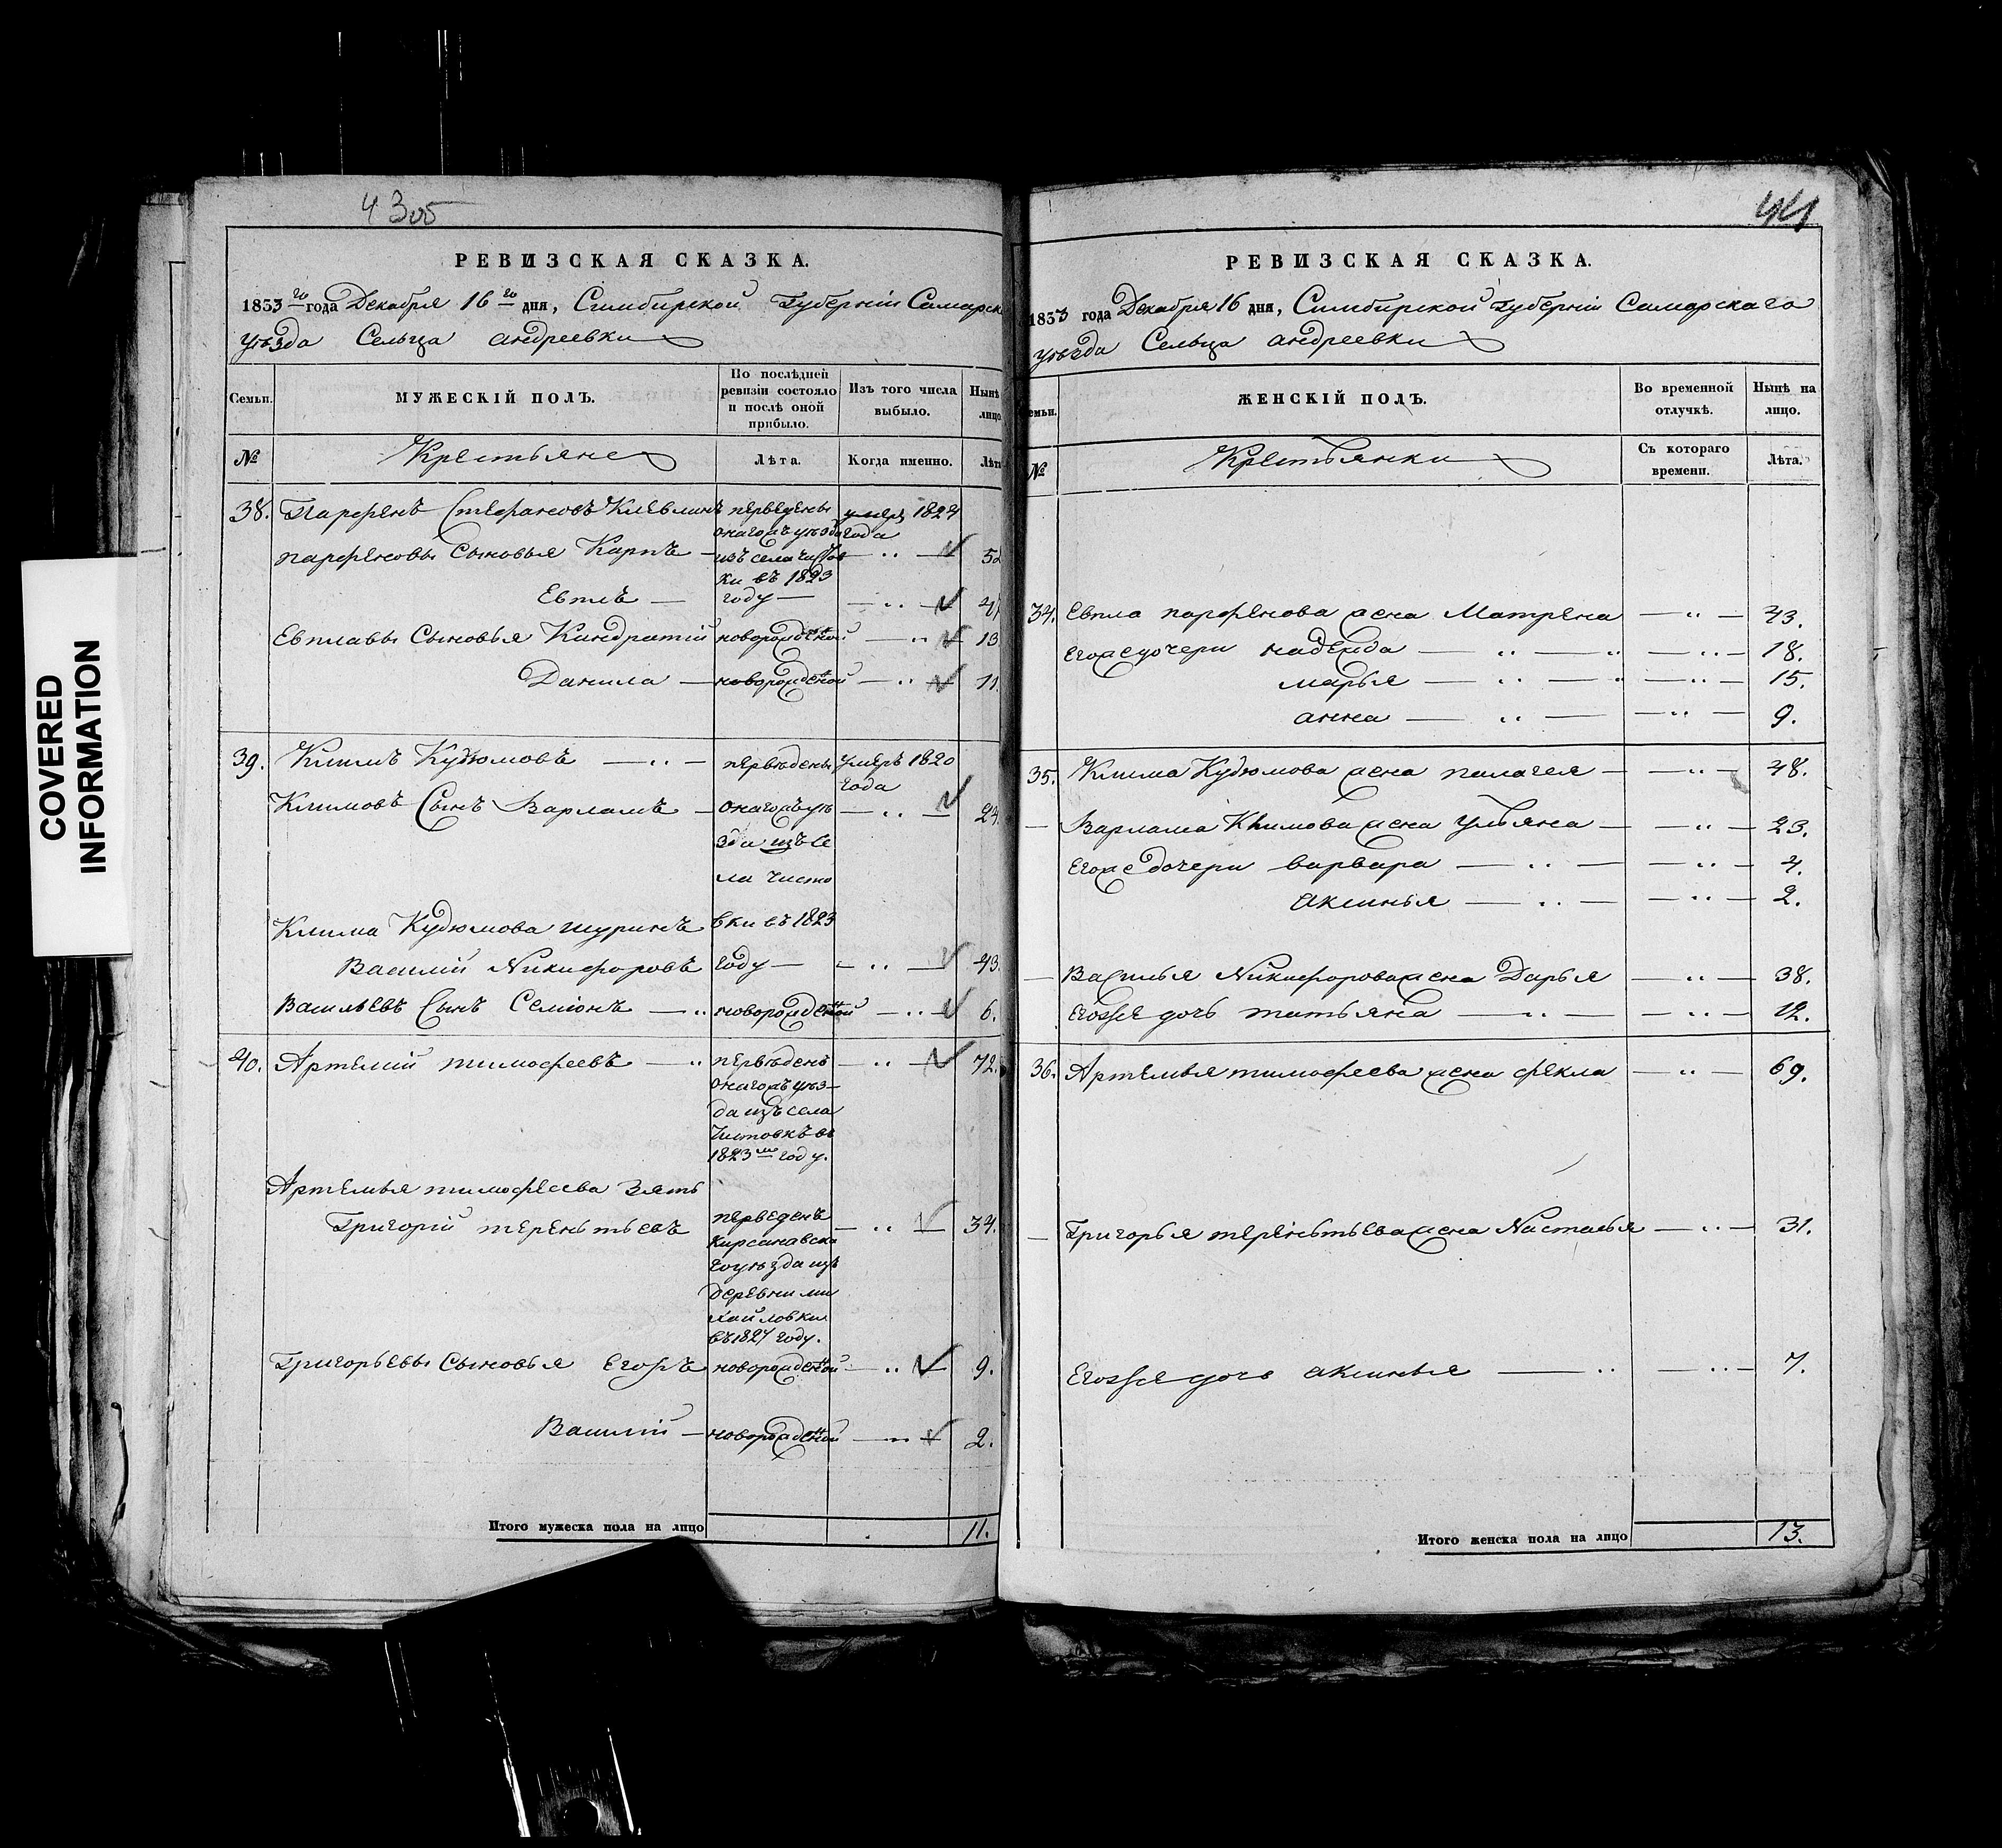 COVERED
INFORMATION
4 305
РЕВИЗСКАЯ СКАЗКА.
1833 го года Декабря 16 го дня, Симбирской Губернiи Самарска
уѣзда Сельца андреевки
Семьи.
МУЖЕСКIЙ ПОЛЪ.
По послѣдней
ревизiи состояло
и послѣ оной
прибыло.
Изъ того числа
выбыло.
Нынѣ
лицо
№
Крестьяне
Лѣта.
Когда именно.
Лѣта
38. Парфенъ Стефановъ Клевлинъ переведены умеръ 1824
онагожъ уѣзда года
парфеновы Сыновья Карпъ — изъ села чистов — " — 52
ки въ 1823
Евплъ — году — — " — 47
Евплавы Сыновья Киндратiй новорожденой — " — 13.
Данила — новорожденой — " — 11.
39. Климъ Кудюмовъ — " — перевѣдены умеръ 1820
года
Климовъ Сынъ Варламъ — онагожъ уѣ — " — 24.
зда изъ се
ла чисто
Клима Кудюмова шуринъ вки въ 1823
Василiй Никифоровъ году — — " — 43.
Васильевъ Сынъ Семiонъ — " новорожденой — " — 6.
40. Артемiй тимофеевъ — " перевѣденъ — " — 72.
онагожъ уѣз—
да изъ села
Чистовкъ въ
1823 мъ году.
Артемья тимофеева Зять
Григорiй терентьевъ переведенъ — " — 34.
Кирсанавска
го уѣзда изъ
деревни ми
хайловки
въ 1824 году.
Григорьевы Сыновья Егоръ новорожденой — " — 9.
Василiй — новорожденой — " — 2.
Итого мужеска пола на лицо 11.
44
РЕВИЗСКАЯ СКАЗКА.
1833 года Декабря 16 дня, Симбирской Губернiи Самарскаго
уѣзда Сельца андреевки
Семьи.
ЖЕНСКIЙ ПОЛЪ.
Во временной
отлучкѣ.
Нынѣ на
лицо.
№
Крестьянки
Съ котораго
времени.
Лѣта.
34. Евпла парфенова жена Матрена — " — 43.
Егоже дочери надежда — " — " — " — 18.
марья — " — " — " — 15.
анна — " — — " — 9.
35. Клима Кудюмова жена палагея — — " — 48.
— Варлама Климова жена ульяна — — " — 23.
Егоже дочери варвара — " — — " — 4.
аксинья — " — — " — 2.
— Василья Никифорова жена Дарья — " — 38.
Егожe дочь татьяна — " — — " — 12.
36. Артемья тимофеева жена фекла — " — 69.
— Григорья терентьева жена Настасья — " — 31.
Егоже дочь аксинья — " — " — 7.
Итого женска пола на лицо 13.